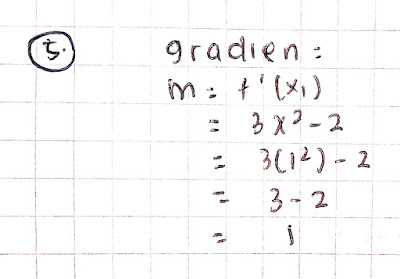 5. gradien :
m = f'(x₁)
= 3x² - 2
= 3(1²) - 2
= 3 - 2
= 1